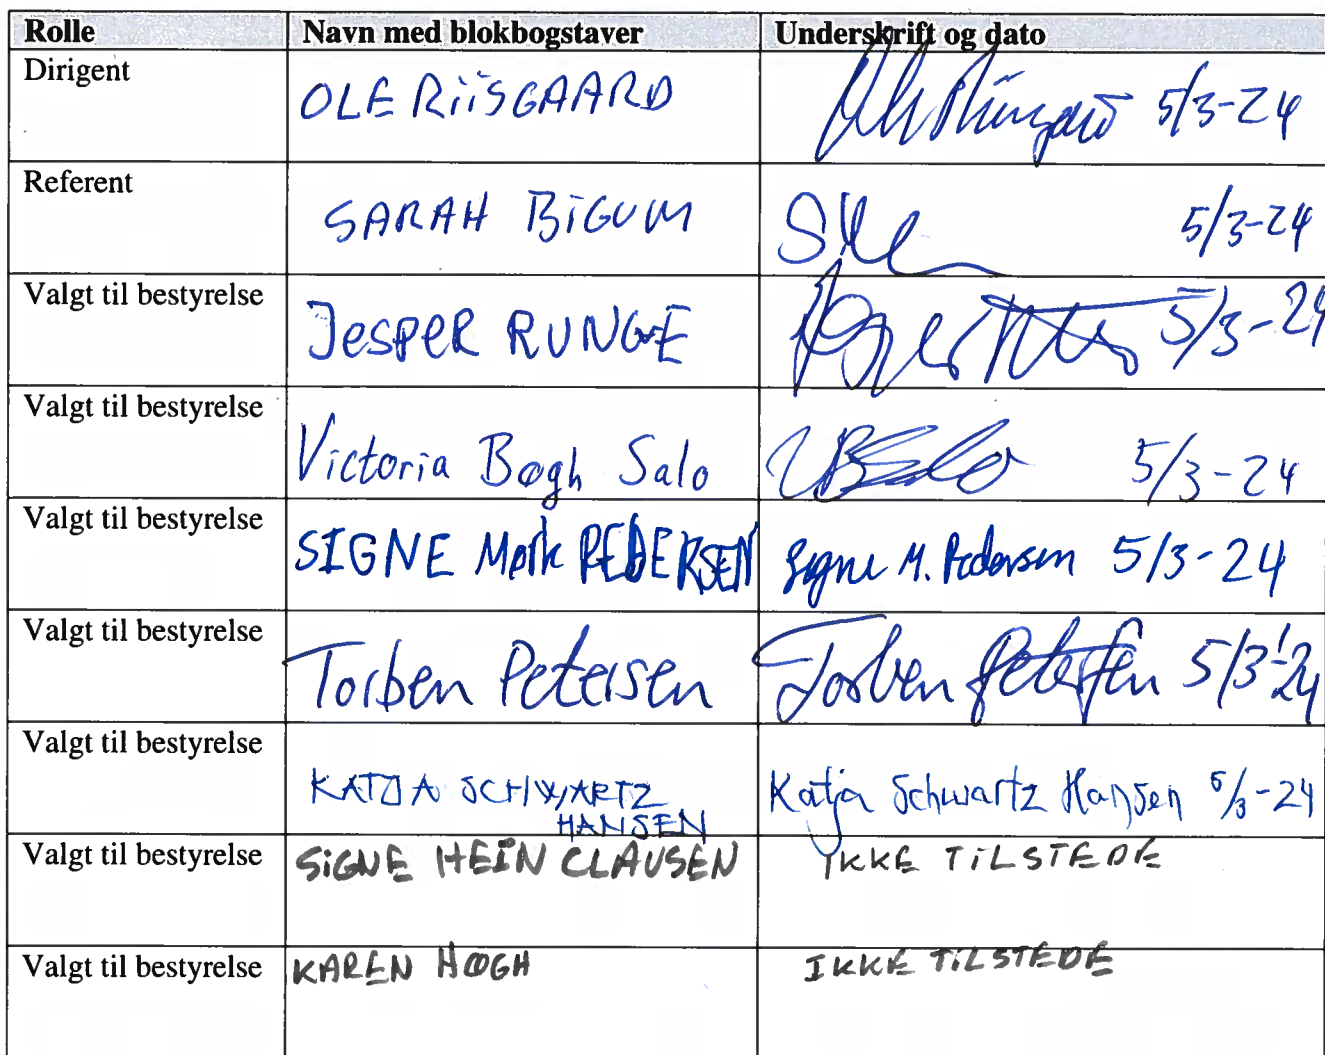 Rolle Navn med blokbogstaver Underskrift og dato
Dirigent OLE RiiSGAARD 5/3-24
Referent SARAH BiGUM 5/3-24
Valgt til bestyrelse JESPER RUNGE 5/3-24
Valgt til bestyrelse Victoria Bøgh Salo VBSalo 5/3-24
Valgt til bestyrelse SIGNE Mørk PEDERSEN Signe M. Pedersen 5/3-24
Valgt til bestyrelse Torben Petersen Torben Petersen 5/3-24
Valgt til bestyrelse KATJA SCHWARTZ Katja Schwartz Hansen 5/3-24
HANSEN
Valgt til bestyrelse SiGNE HEIN CLAUSEN IKKE TiLSTEDE
Valgt til bestyrelse KAREN HØGH IKKE TiLSTEDE